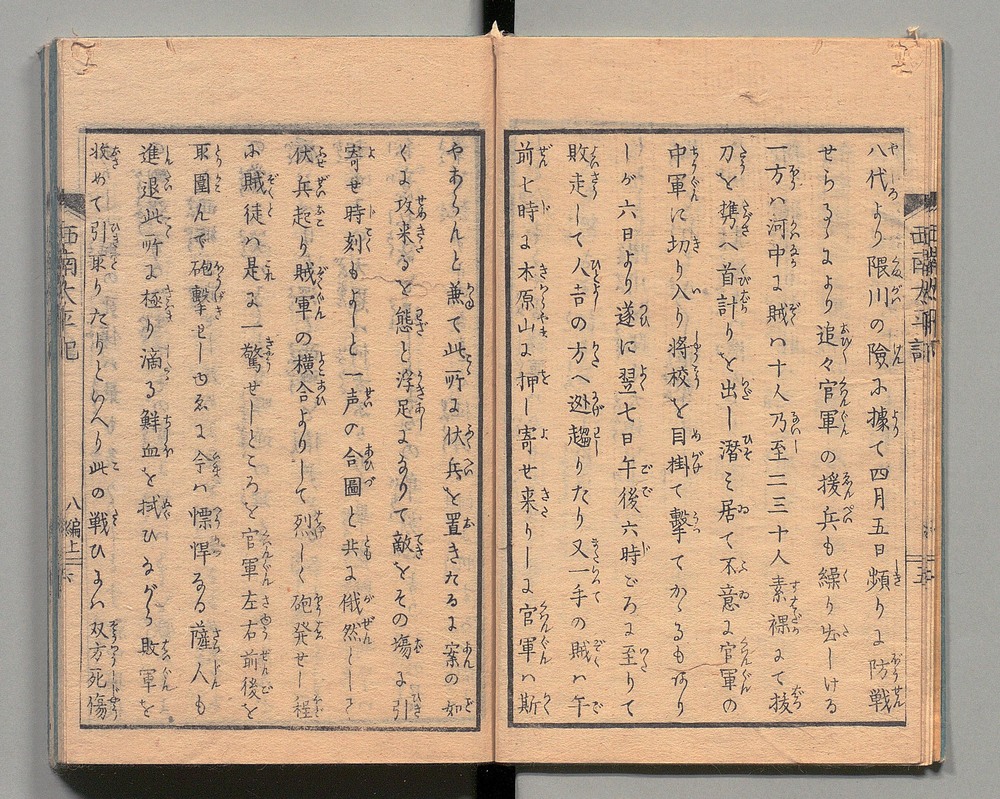 八代より隈川の險に據て四月五日頻りに防戦
せらるゝにより追々官軍の援兵も繰り出しける
一方ハ河中に賊ハ十人乃至二三十人素裸にて抜
刀を携へ首計りを出し潜み居て不意に官軍の
中軍に切り入り将校を目掛て撃てかゝるもあり
しが六日より遂に翌七日午後六時ごろに至りて
敗走して人吉の方へ迯趨りたり又一手の賊ハ午
前七時に木原山に押し寄せ来りしに官軍ハ斯
やあらんと兼て此所に伏兵を置きたるに案の如
くに攻来ると態と浮足になりて敵をその場に引
寄せ時刻もよしと一声の合圖と共に俄然しさ
伏兵起り賊軍の横合よりして烈しく砲発せし程
に賊徒ハ是に一驚せしところを官軍左右前後を
取圍んで砲撃せしゆゑに今ハ慓悍なる薩人も
進退此所に極り滴る鮮血を拭ひながら敗軍を
收めて引取りたりといへり此の戦ひにハ双方死傷
西南太平記
八編上